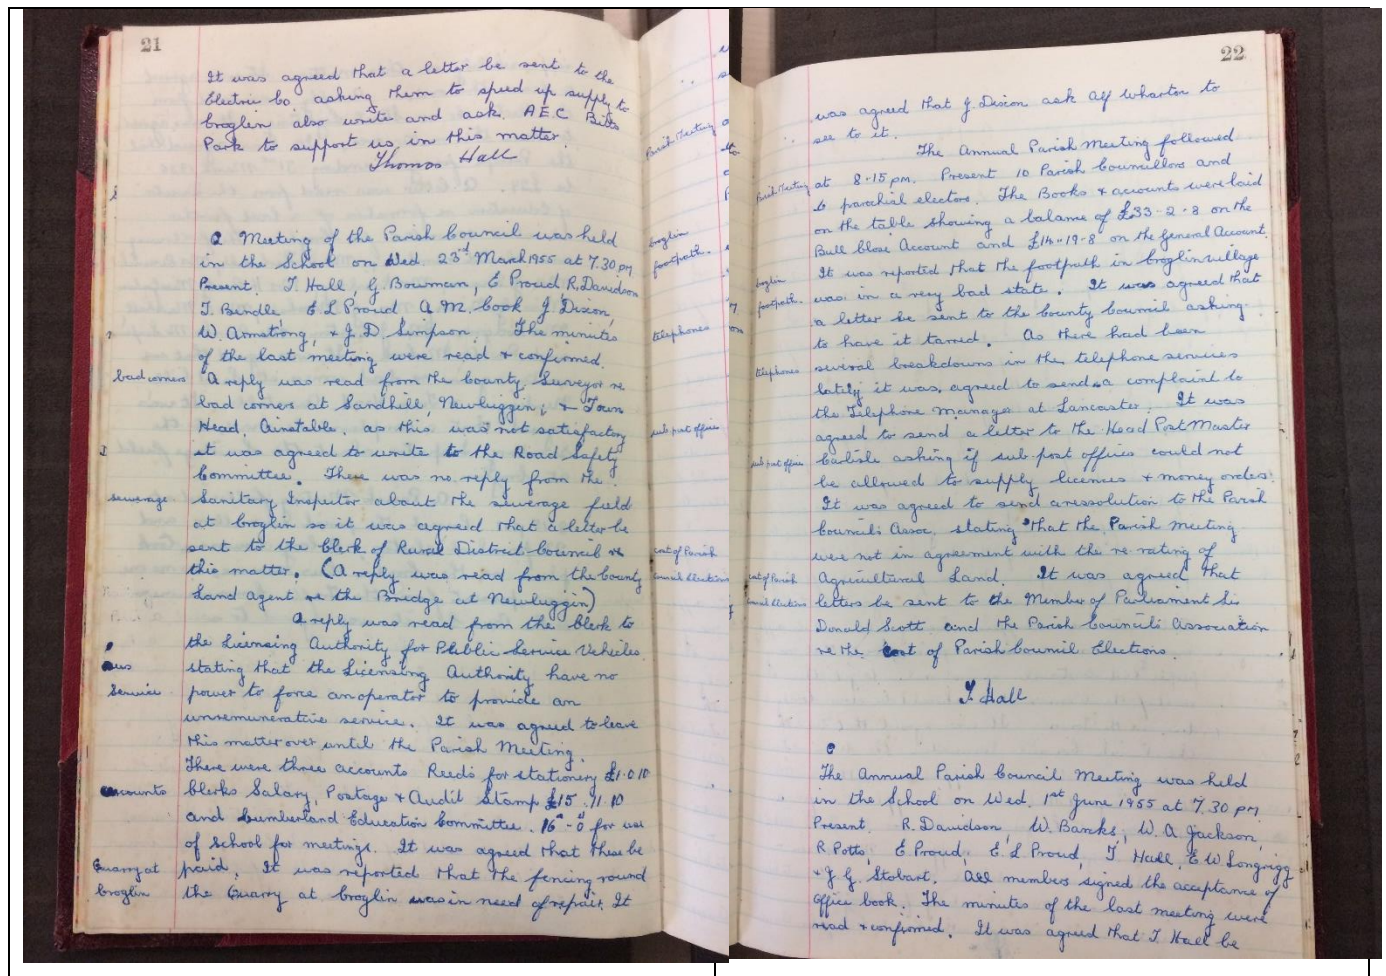 21
It was agreed that a letter be sent to the
Electric Co. asking them to speed up supply to
Croglin also write and ask A E C Bitts
Park to support us in this matter.
Thomas Hall
A Meeting of the Parish Council was held
in the School on Wed 23rd March 1955 at 7.30 pm
Present. T. Hall G. Bowman, E Proud R. Davidson
T. Bendle E. L Proud A. M. Cook J. Dixon,
W. Armstrong, & J. D. Simpson. The minutes
of the last meeting were read & confirmed.
bad corners A reply was read from the County Surveyor re
bad corners at Sandhill, Newbiggin, & Town
Head, Ainstable. as this was not satisfactory
it was agreed to write to the Road Safety
Committee. There was no reply from the
sewerage Sanitary Inspector about the sewerage field
at Croglin so it was agreed that a letter be
sent to the Clerk of Rural District Council re
this matter. (A reply was read from the County
Land Agent re the Bridge at Newbiggin)
A reply was read from the Clerk to
the Licensing Authority for Public Service Vehicles
Bus stating that the Licensing Authority have no
Service power to force an operator to provide an
unremunerative service. It was agreed to leave
this matter over until the Parish Meeting.
There were three accounts Reed's for stationery £1.0.10
accounts Clerks Salary, Postage & Audit Stamp £15.11.10
and Cumberland Education Committee. 16s-0d for use
of School for meetings. It was agreed that these be
Quarry at paid. It was reported that the fencing round
Croglin the Quarry at Croglin was in need of repair. It
Parish Meeting
Croglin
footpath.
telephones
sub post offices
cost of Parish
Council Elections
22
was agreed that J. Dixon ask Alf Wharton to
see to it.
The Annual Parish Meeting followed
Parish Meeting at 8.15 pm. Present 10 Parish Councillors and
6 parochial electors. The Books & accounts were laid
on the table showing a balance of £33-2-8 on the
Bull Close Account and £14-19-8 on the General Account.
Croglin It was reported that the footpath in Croglin village
footpath. was in a very bad state. It was agreed that
a letter be sent to the County Council asking
to have it tarred. As there had been
telephones several breakdowns in the telephone services
lately it was agreed to send a complaint to
the Telephone Manager at Lancaster. It was
agreed to send a letter to the Head Post Master
sub post offices Carlisle asking if sub-post offices could not
be allowed to supply licences & money orders.
It was agreed to send a ressolution to the Parish
Councils Assoc. stating that the Parish Meeting
were not in agreement with the re-rating of
cost of Parish Agricultural Land. It was agreed that
Council Elections letters be sent to the Member of Parliament Sir
Donald Scott and the Parish Councils Association
re the Cost of Parish Council Elections.
T. Hall
The Annual Parish Council Meeting was held
in the School on Wed. 1st June 1955 at 7.30 pm
Present R. Davidson, W. Banks, W. A. Jackson,
R Potts, E Proud, E. L Proud, T. Hall, E W Longrigg
& J. G. Stobart. All members signed the acceptance of
Office book. The minutes of the last meeting were
read & confirmed. It was agreed that T. Hall be